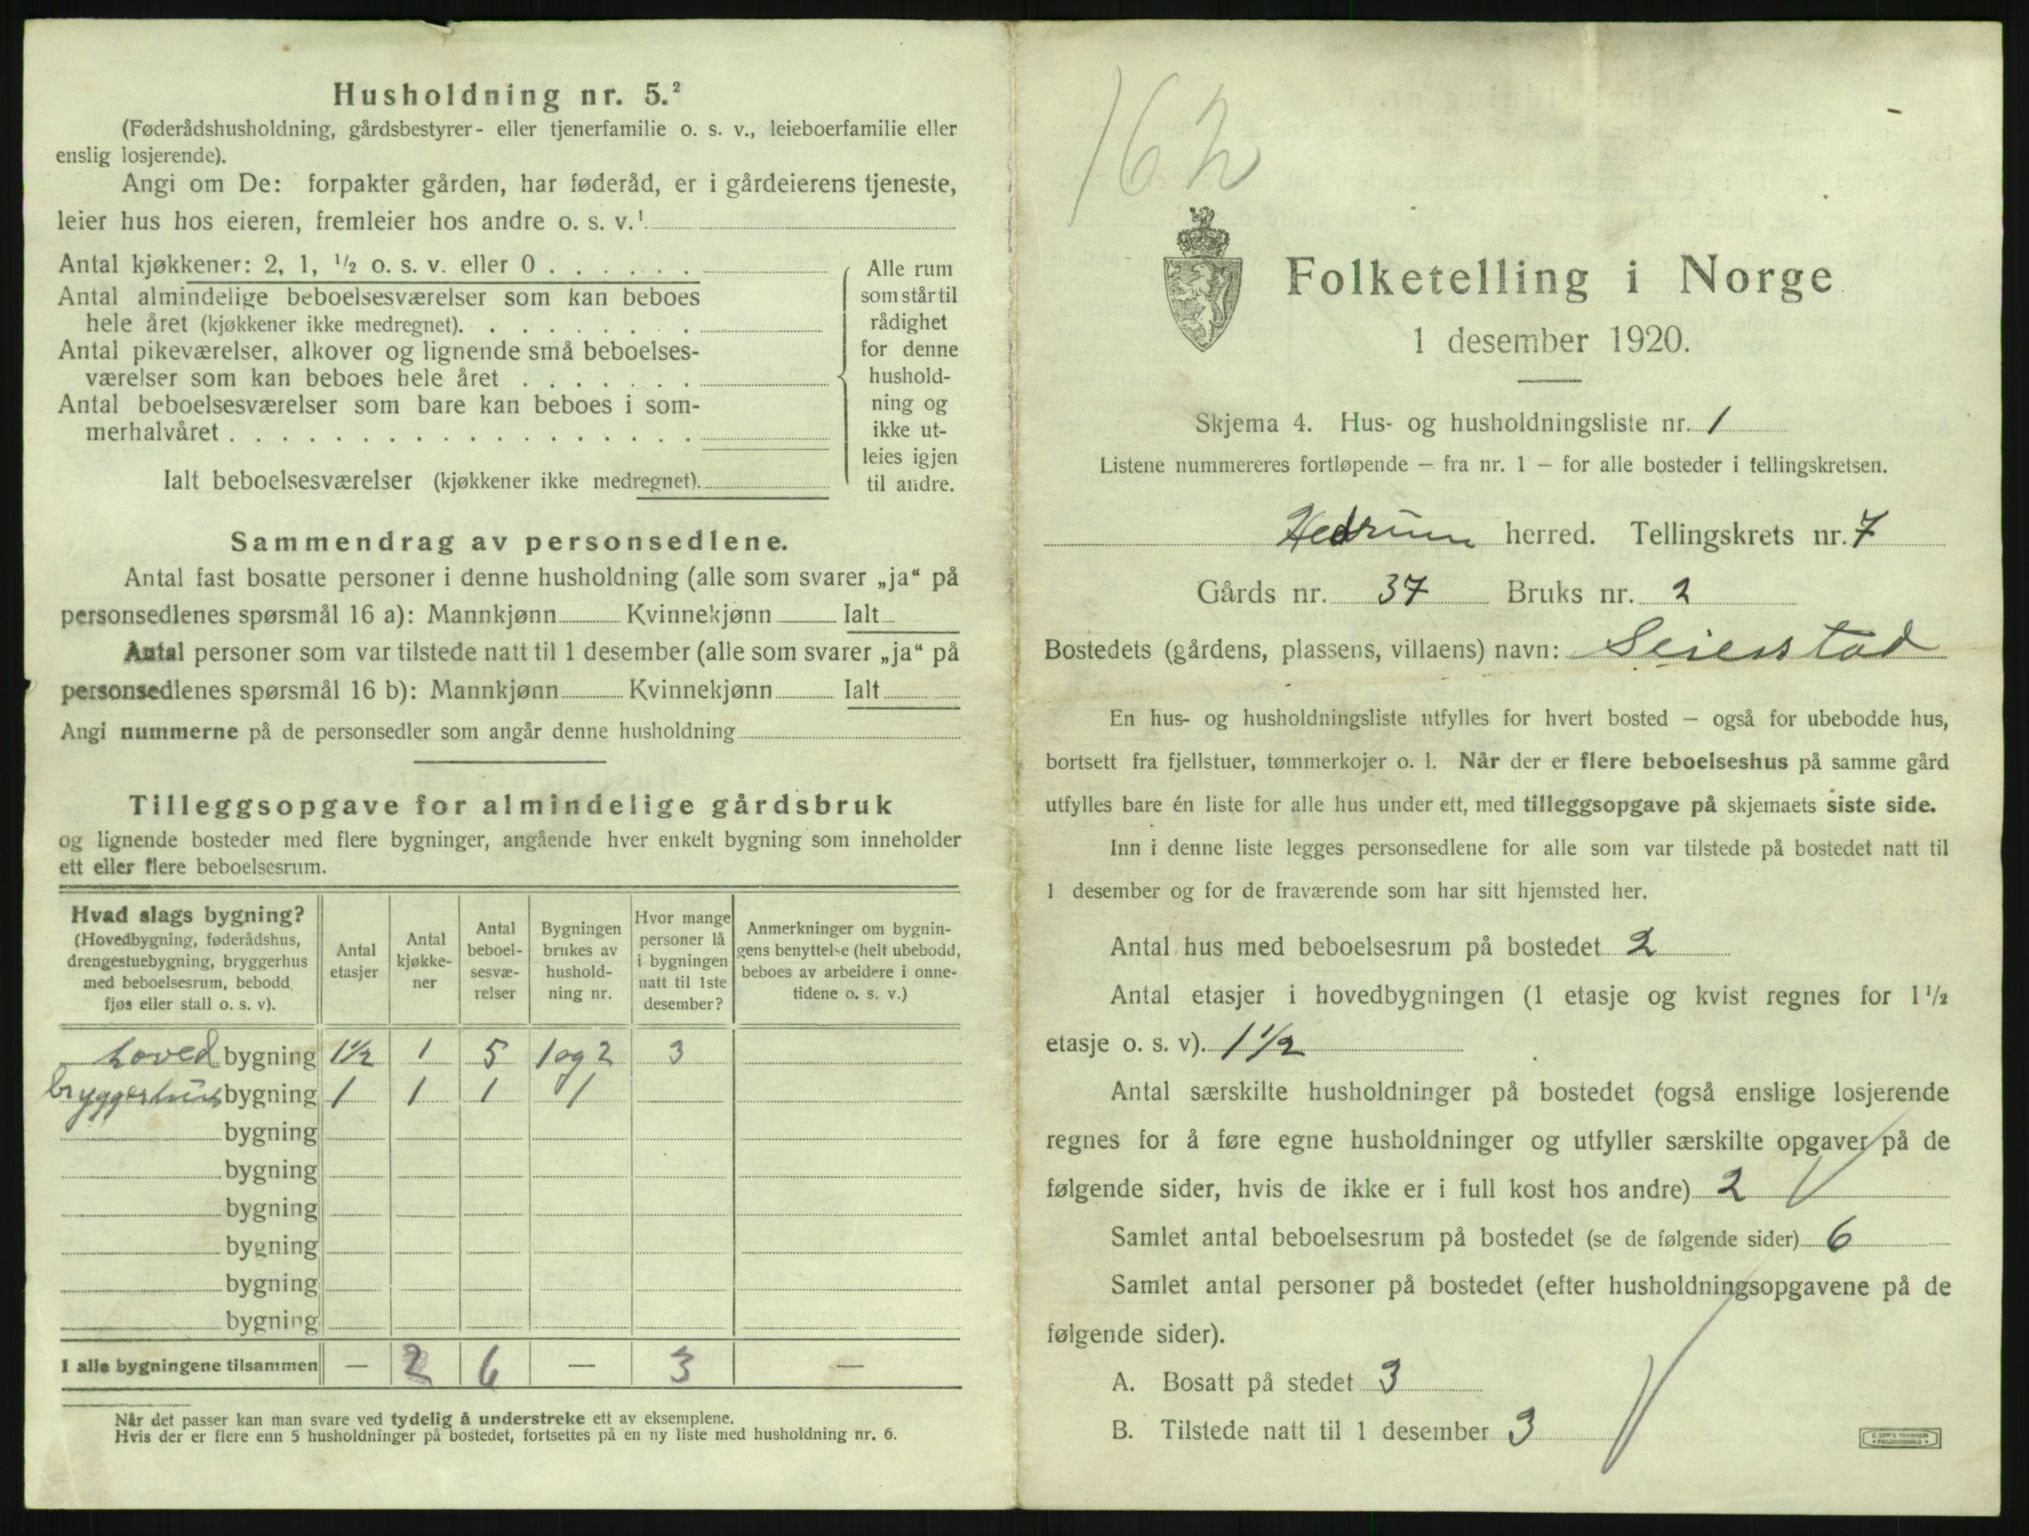 Husholdning nr. 5.²
(Føderådshusholdning, gårdsbestyrer- eller tjenerfamilie o. s. v., leieboerfamilie eller
enslig losjerende).
Angi om De: forpakter gården, har føderåd, er i gårdeierens tjeneste,
leier hus hos eieren, fremleier hos andre o. s. v.¹
Antal kjøkkener: 2, 1, ½ o. s. v. eller 0 . . . . . .
Antal almindelige beboelsesværelser som kan beboes
hele året (kjøkkener ikke medregnet). . . . . . . .
Antal pikeværelser, alkover og lignende små beboelses-
værelser som kan beboes hele året . . . . . . .
Antal beboelsesværelser som bare kan beboes i som-
merhalvåret . . . . . . . . . . . . . . . . . .
Ialt beboelsesværelser (kjøkkener ikke medregnet).
Alle rum
som står til
rådighet
for denne
hushold-
ning og
ikke ut-
leies igjen
til andre.
Sammendrag av personsedlene.
Antal fast bosatte personer i denne husholdning (alle som svarer „ja“ på
personsedlenes spørsmål 16 a): Mannkjønn Kvinnekjønn Ialt
Antal personer som var tilstede natt til 1 desember (alle som svarer „ja“ på
personsedlenes spørsmål 16 b): Mannkjønn Kvinnekjønn Ialt
Angi nummerne på de personsedler som angår denne husholdning
Tilleggsopgave for almindelige gårdsbruk
og lignende bosteder med flere bygninger, angående hver enkelt bygning som inneholder
ett eller flere beboelsesrum.
Hvad slags bygning?
(Hovedbygning, føderådshus,
drengestuebygning, bryggerhus
med beboelsesrum, bebodd
fjøs eller stall o. s. v).
Antal
etasjer
Antal
kjøkke-
ner
Antal
beboel-
sesvæ-
relser
Bygningen
brukes av
hushold-
ning nr.
Hvor mange
personer lå
i bygningen
natt til 1ste
desember?
Anmerkninger om bygnin-
gens benyttelse (helt ubebodd,
beboes av arbeidere i onne-
tidene o. s. v.)
hoved bygning 1½ 1 5 1 og 2 3
bryggerhus bygning 1 1 1 1
bygning
bygning
bygning
bygning
bygning
bygning
I alle bygningene tilsammen — 2 6 — 3 —
Når det passer kan man svare ved tydelig å understreke ett av eksemplene.
Hvis der er flere enn 5 husholdninger på bostedet, fortsettes på en ny liste med husholdning nr. 6.
162
Folketelling i Norge
1 desember 1920.
Skjema 4. Hus- og husholdningsliste nr. 1
Listene nummereres fortløpende — fra nr. 1 — for alle bosteder i tellingskretsen.
Hedrum herred. Tellingskrets nr. 7
Gårds nr. 37 Bruks nr. 2
Bostedets (gårdens, plassens, villaens) navn: Seierstad
En hus- og husholdningsliste utfylles for hvert bosted — også for ubebodde hus,
bortsett fra fjellstuer, tømmerkojer o. l. Når der er flere beboelseshus på samme gård
utfylles bare én liste for alle hus under ett, med tilleggsopgave på skjemaets siste side.
Inn i denne liste legges personsedlene for alle som var tilstede på bostedet natt til
1 desember og for de fraværende som har sitt hjemsted her.
Antal hus med beboelsesrum på bostedet 2
Antal etasjer i hovedbygningen (1 etasje og kvist regnes for 1½
etasje o. s. v). 1½
Antal særskilte husholdninger på bostedet (også enslige losjerende
regnes for å føre egne husholdninger og utfyller særskilte opgaver på de
følgende sider, hvis de ikke er i full kost hos andre) 2
Samlet antal beboelsesrum på bostedet (se de følgende sider) 6
Samlet antal personer på bostedet (efter husholdningsopgavene på de
følgende sider).
A. Bosatt på stedet 3
B. Tilstede natt til 1 desember 3